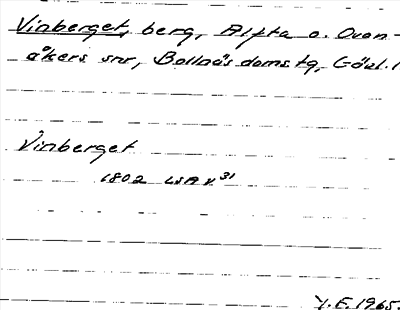 Vinberget, berg, Alfta o. Ovan-
åkers snr, Bollnäs doms.tg, Gävl.l
Vinberget
1802 LSA v 31
Y.E. 1965.